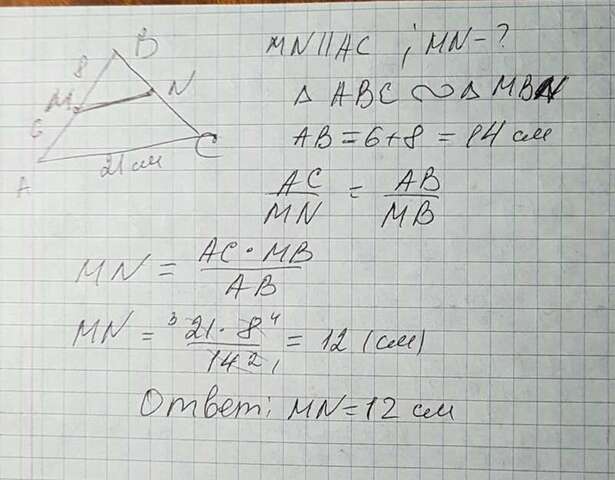 B
8
M
N
6
A
21 см
C
MN || AC ; MN - ?
Δ ABC ∾ Δ MBN
AB = 6 + 8 = 14 см
AC / MN = AB / MB
MN = AC · MB / AB
MN = ³ 21 · 8 ⁴ / 14 2 1 = 12 (см)
Ответ: MN = 12 см